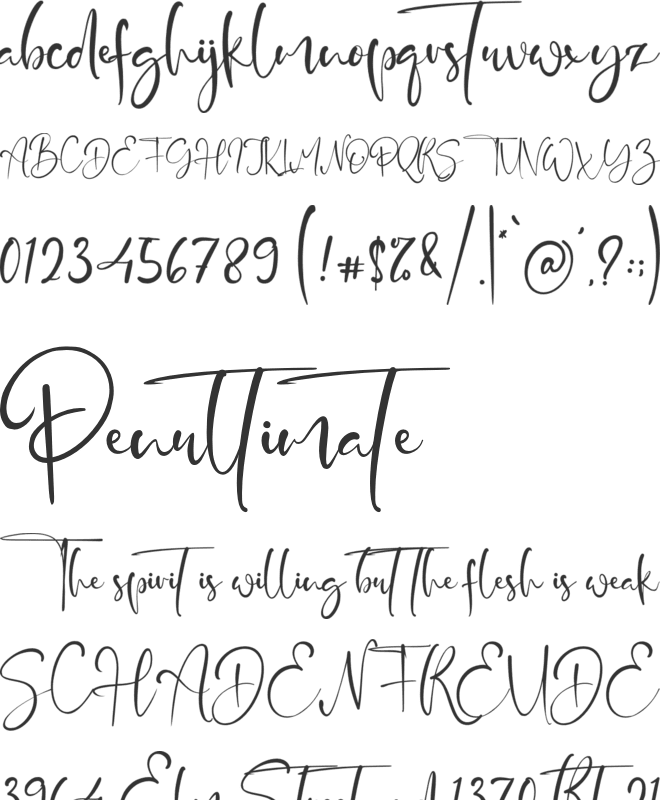 abcdefghijklmnopqrstuvwxyz
ABCDEFGHIJKLMNOPQRSTUVWXYZ
0123456789(!#$%&/.|*`@´,?:;)
Penultimate
The spirit is willing but the flesh is weak
SCHADENFREUDE
3964 Elm Street 1370 21